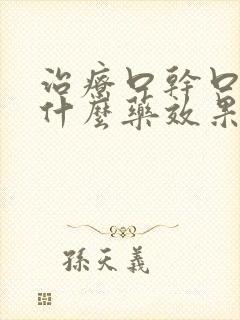 治療口幹口
什麼藥效果
孫天義